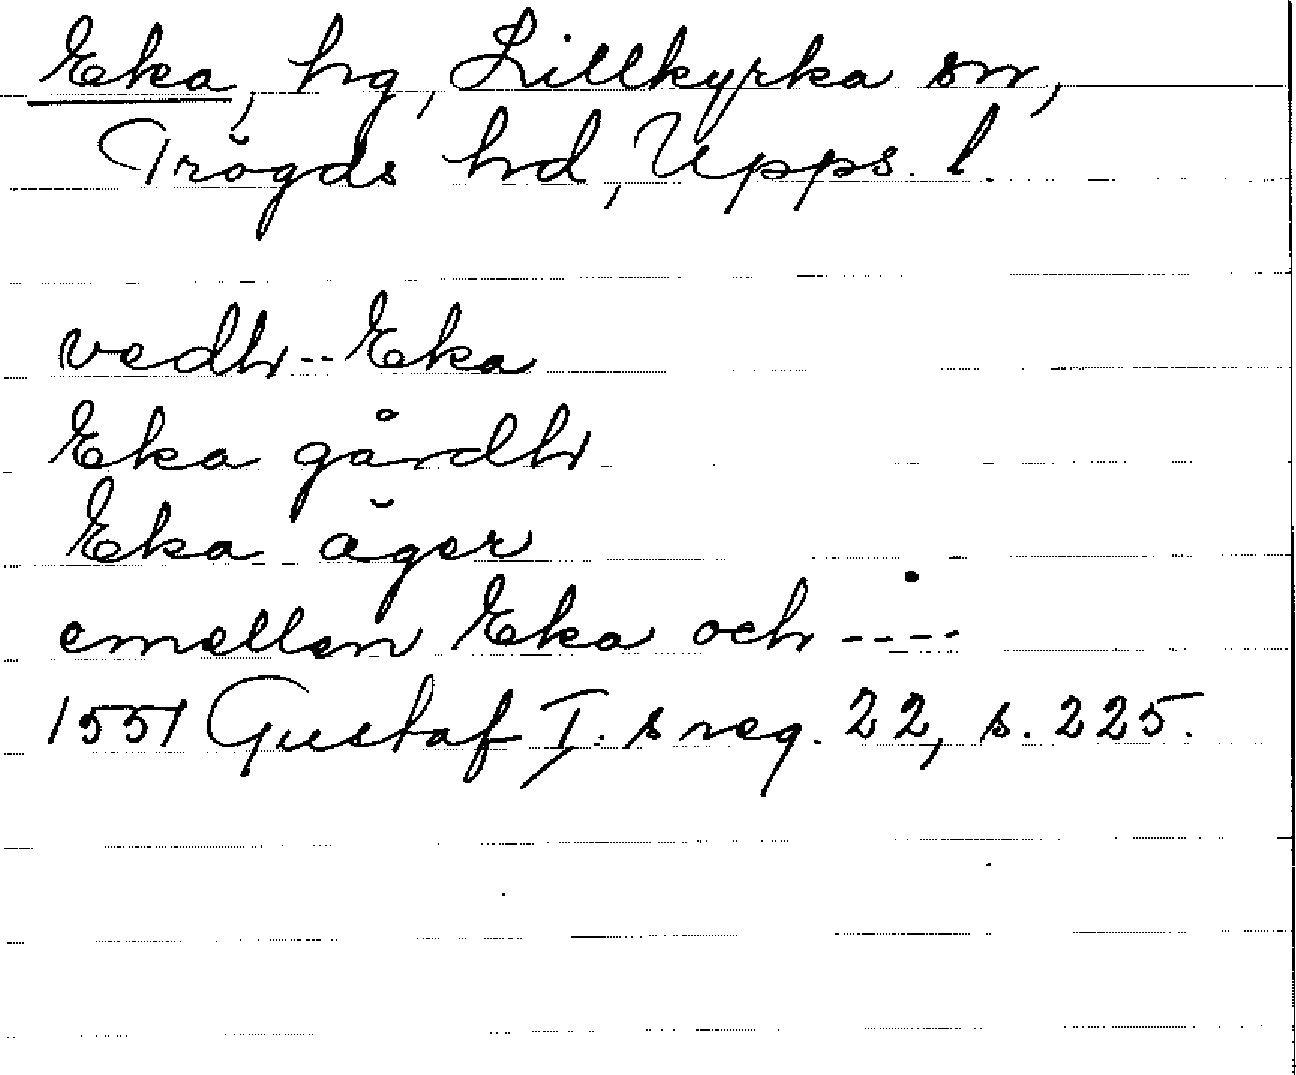 Eka, hg, Lillkyrka sn,
Trögds hd, Upps. l.
vedh -- Eka
Eka gårdh
Eka äger
emellan Eka och ----
1551 Gustaf I. s reg. 22, s. 225.